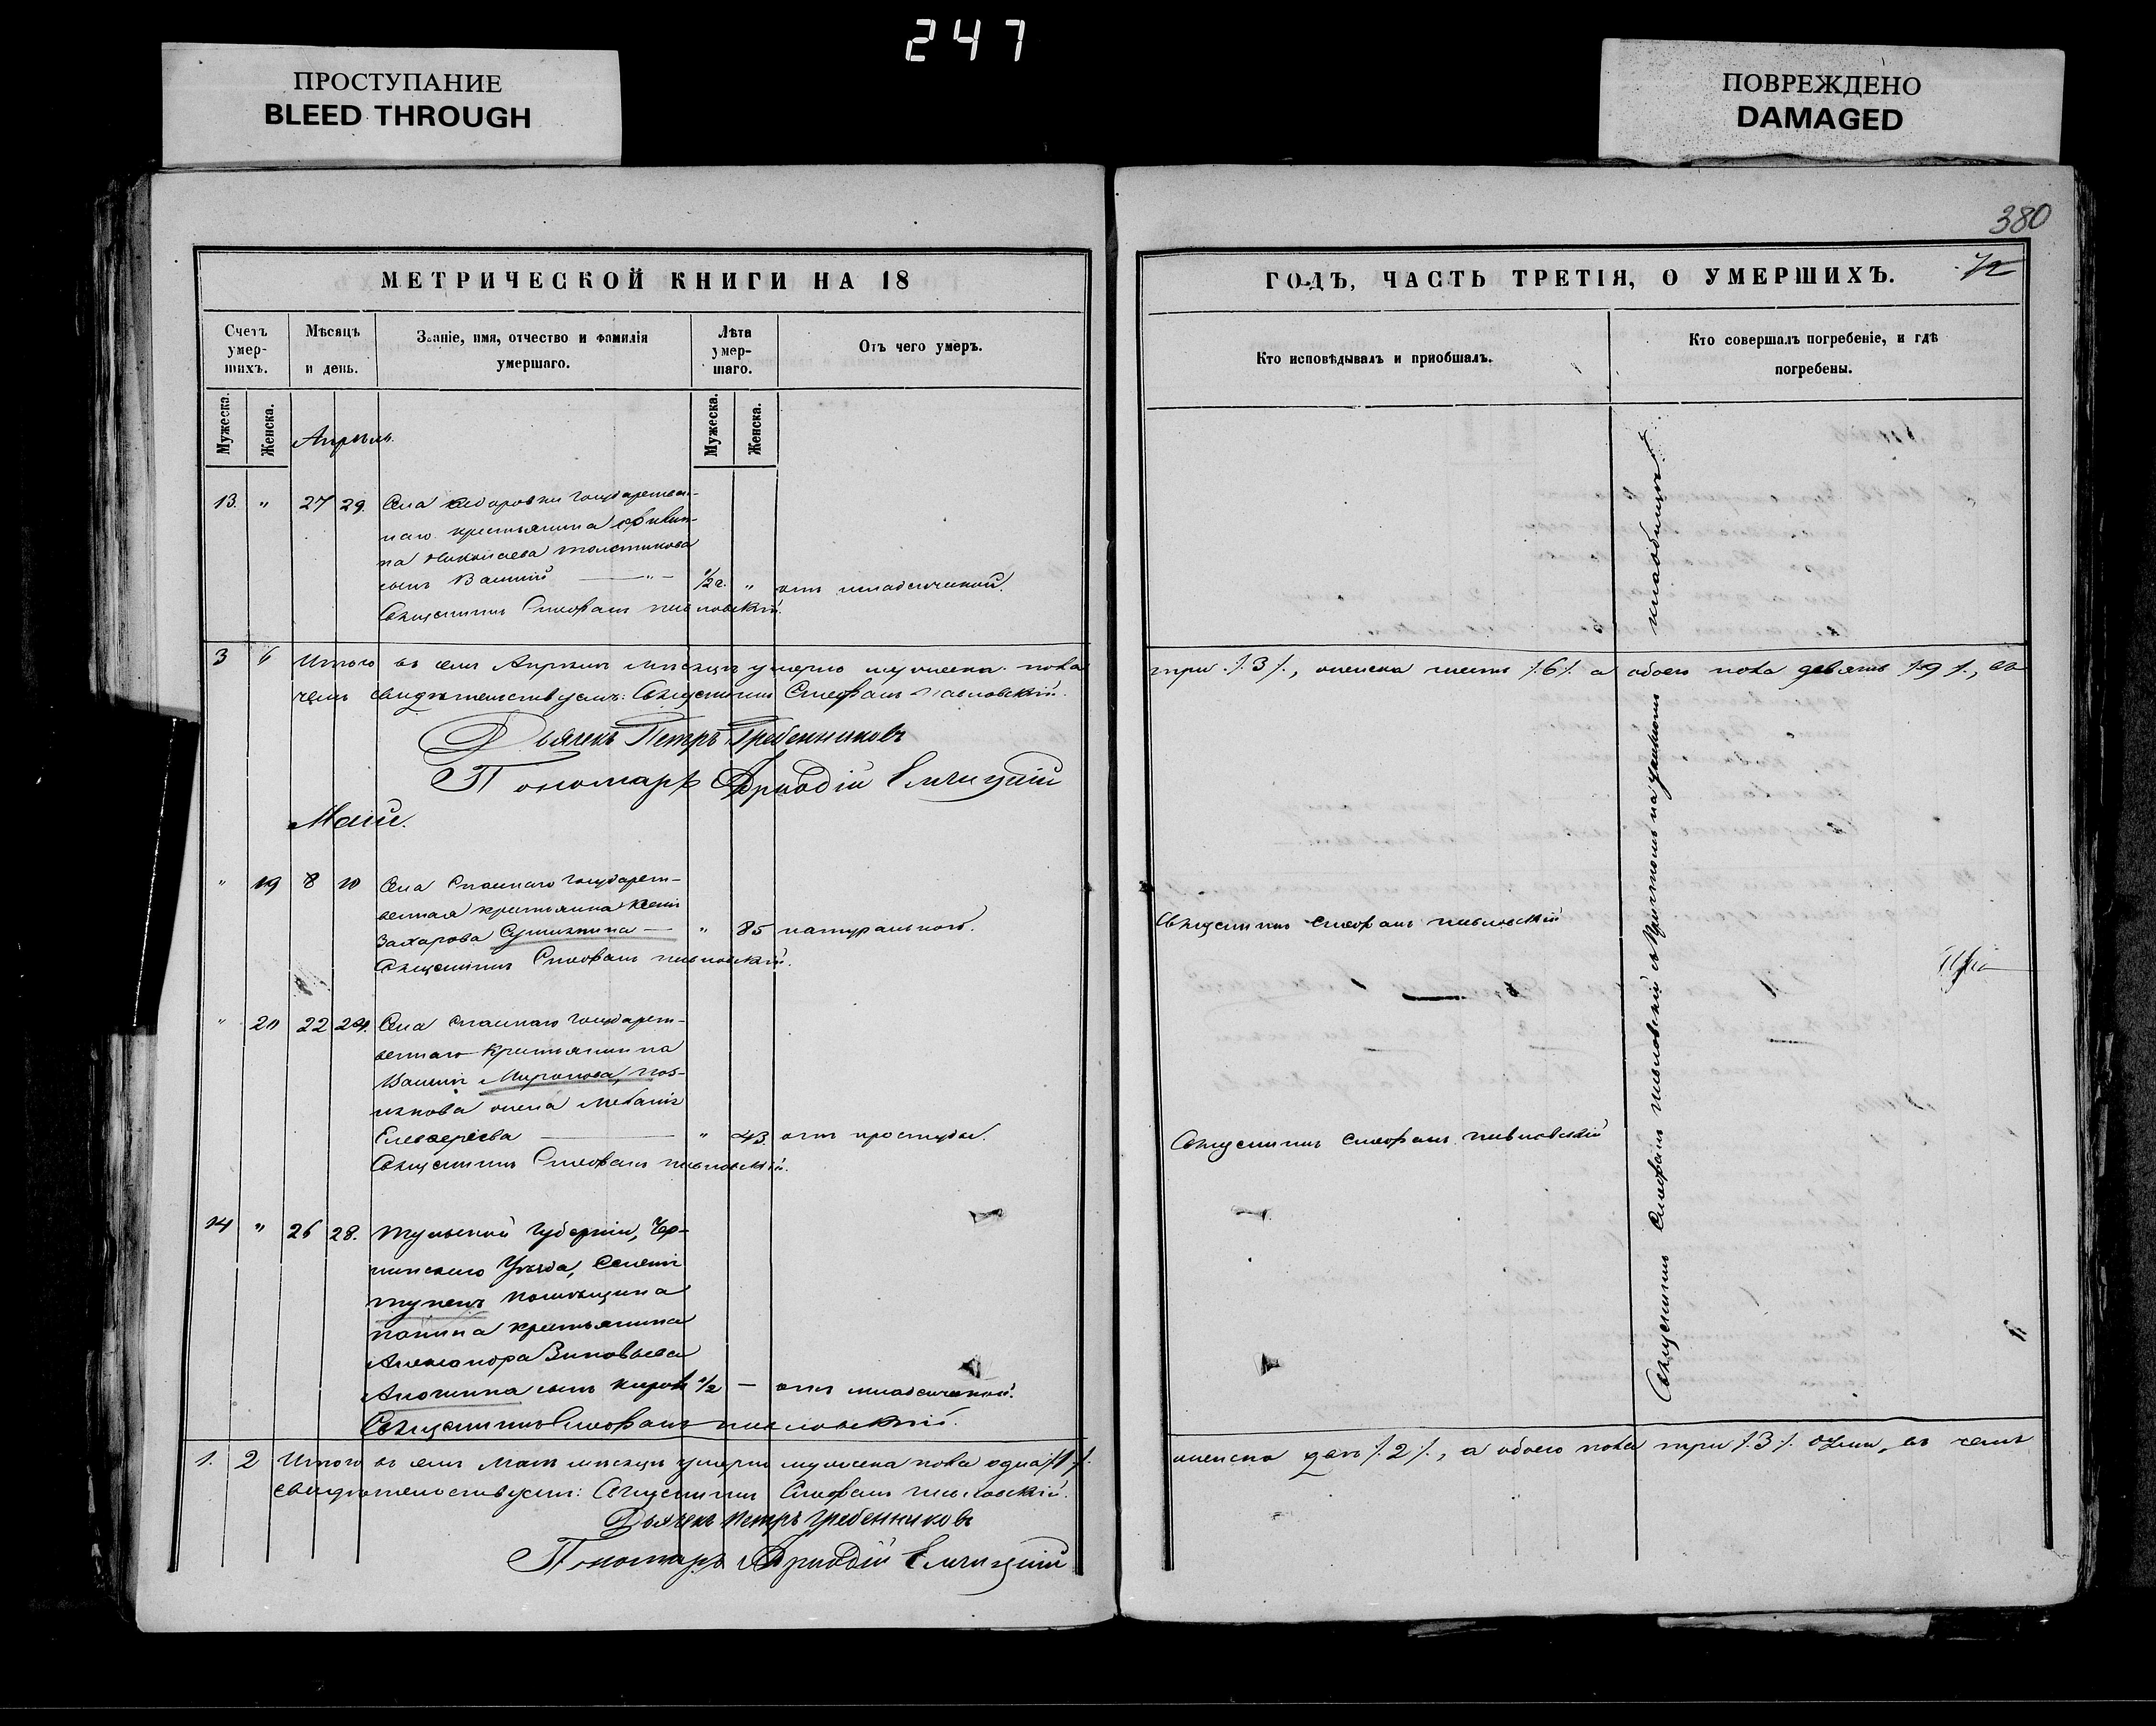 247
ПРОСТУПАНИЕ
BLEED THROUGH
ПОВРЕЖДЕНО
DAMAGED
380
МЕТРИЧЕСКОЙ КНИГИ НА 18
Счетъ умер-шихъ.
Мѣсяцъ и день.
Званіе, имя, отчество и фамилія умершаго.
Лѣта умер-шаго.
Отъ чего умеръ.
Мужеска.
Женска.
Мужеска.
Женска.
Апрѣль.
13. " 27 29. Села государствен-
наго крестьянина
на Николаева Толстикова
сынъ Василій — " — 1/2 г. " отъ младенческой.
Священникъ Стефанъ Павловскій.
3 6 Итого въ семъ Апрѣлѣ мѣсяцѣ умерло мужеска пола
чемъ свидѣтельствуемъ: Священникъ Стефанъ Павловскій.
Дьячекъ Петръ Гребенниковъ
Пономарь
Май.
" 19 8 10 Села Спаскаго государст-
венная крестьянка
Захарова — " 85 натуральною.
Священникъ Стефанъ Павловскій.
" 20 22 24. Села Спаскаго государст-
веннаго крестьянина
Миронова, поз-
някова жена Меланія
Елевферіева — " 43. отъ простуды.
Священникъ Стефанъ Павловскій.
14 " 26 28. Тульской губерніи, Чер-
нинскаго Уѣзда,
помѣщика
крестьянина
Александра Зиновьева
сынъ 1/2 — отъ младенческой.
Священникъ Стефанъ Павловскій.
1. 2 Итого въ семъ Маѣ мѣсяцѣ умерло мужеска пола одна /.1./
свидѣтельствуемъ: Священникъ Стефанъ Павловскій.
Дьячекъ Петръ Гребенниковъ
Пономарь
ГОДЪ, ЧАСТЬ ТРЕТІЯ, О УМЕРШИХЪ.
72
Кто исповѣдывалъ и пріобщалъ.
Кто совершалъ погребеніе, и гдѣ погребены.
три /.3./, женска шесть /.6./ а обоего пола девять /.9./, въ
Священникъ Стефанъ Павловскій
Священникъ Стефанъ Павловскій
Священникъ Стефанъ Павловскій съ Причтомъ на приходскомъ кладбищѣ.
женска двѣ /.2./, а обоего пола три /.3./ въ чемъ